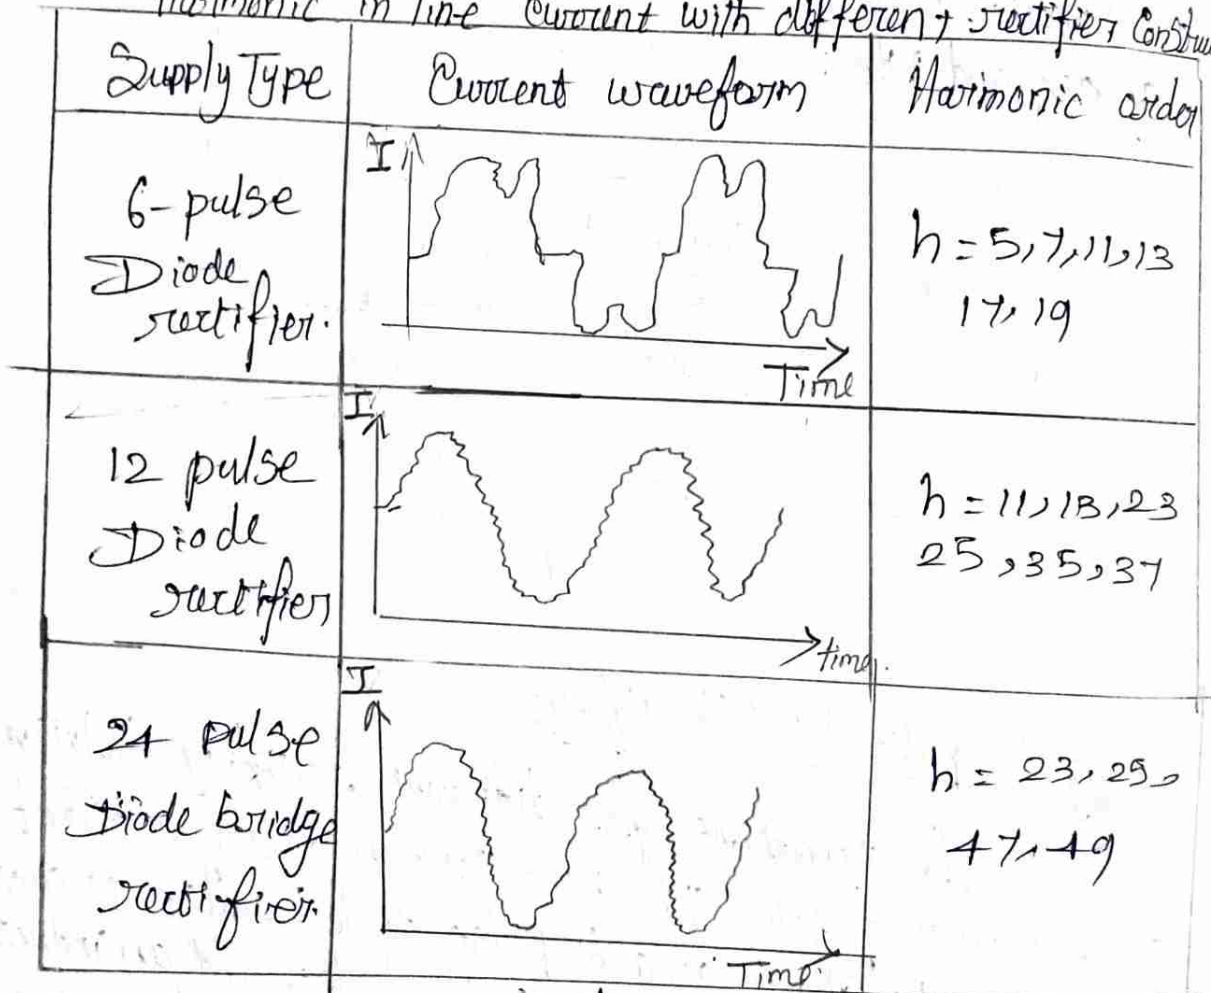 Harmonic in line current with different rectifier
Supply Type
Current waveform
Harmonic order
6-pulse
Diode
rectifier.
I
Time
h = 5, 7, 11, 13
17, 19
12 pulse
Diode
rectifier
I
time.
h = 11, 13, 23
25, 35, 37
24 pulse
Diode bridge
rectifier.
I
Time.
h = 23, 25,
47, 49